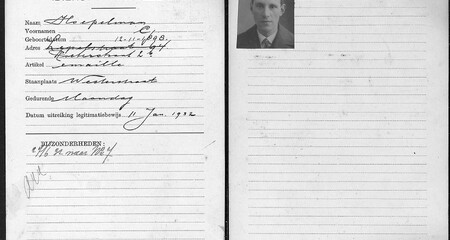 Naam Hoepelman
Voornamen C.
Geboortedatum 12-11-1893.
Adres
Artikel emaille
Staanplaats Westerstraat
Gedurende Maandag
Datum uitreiking legitimatiebewijs 11 Jan. 1932
BIJZONDERHEDEN:
naar